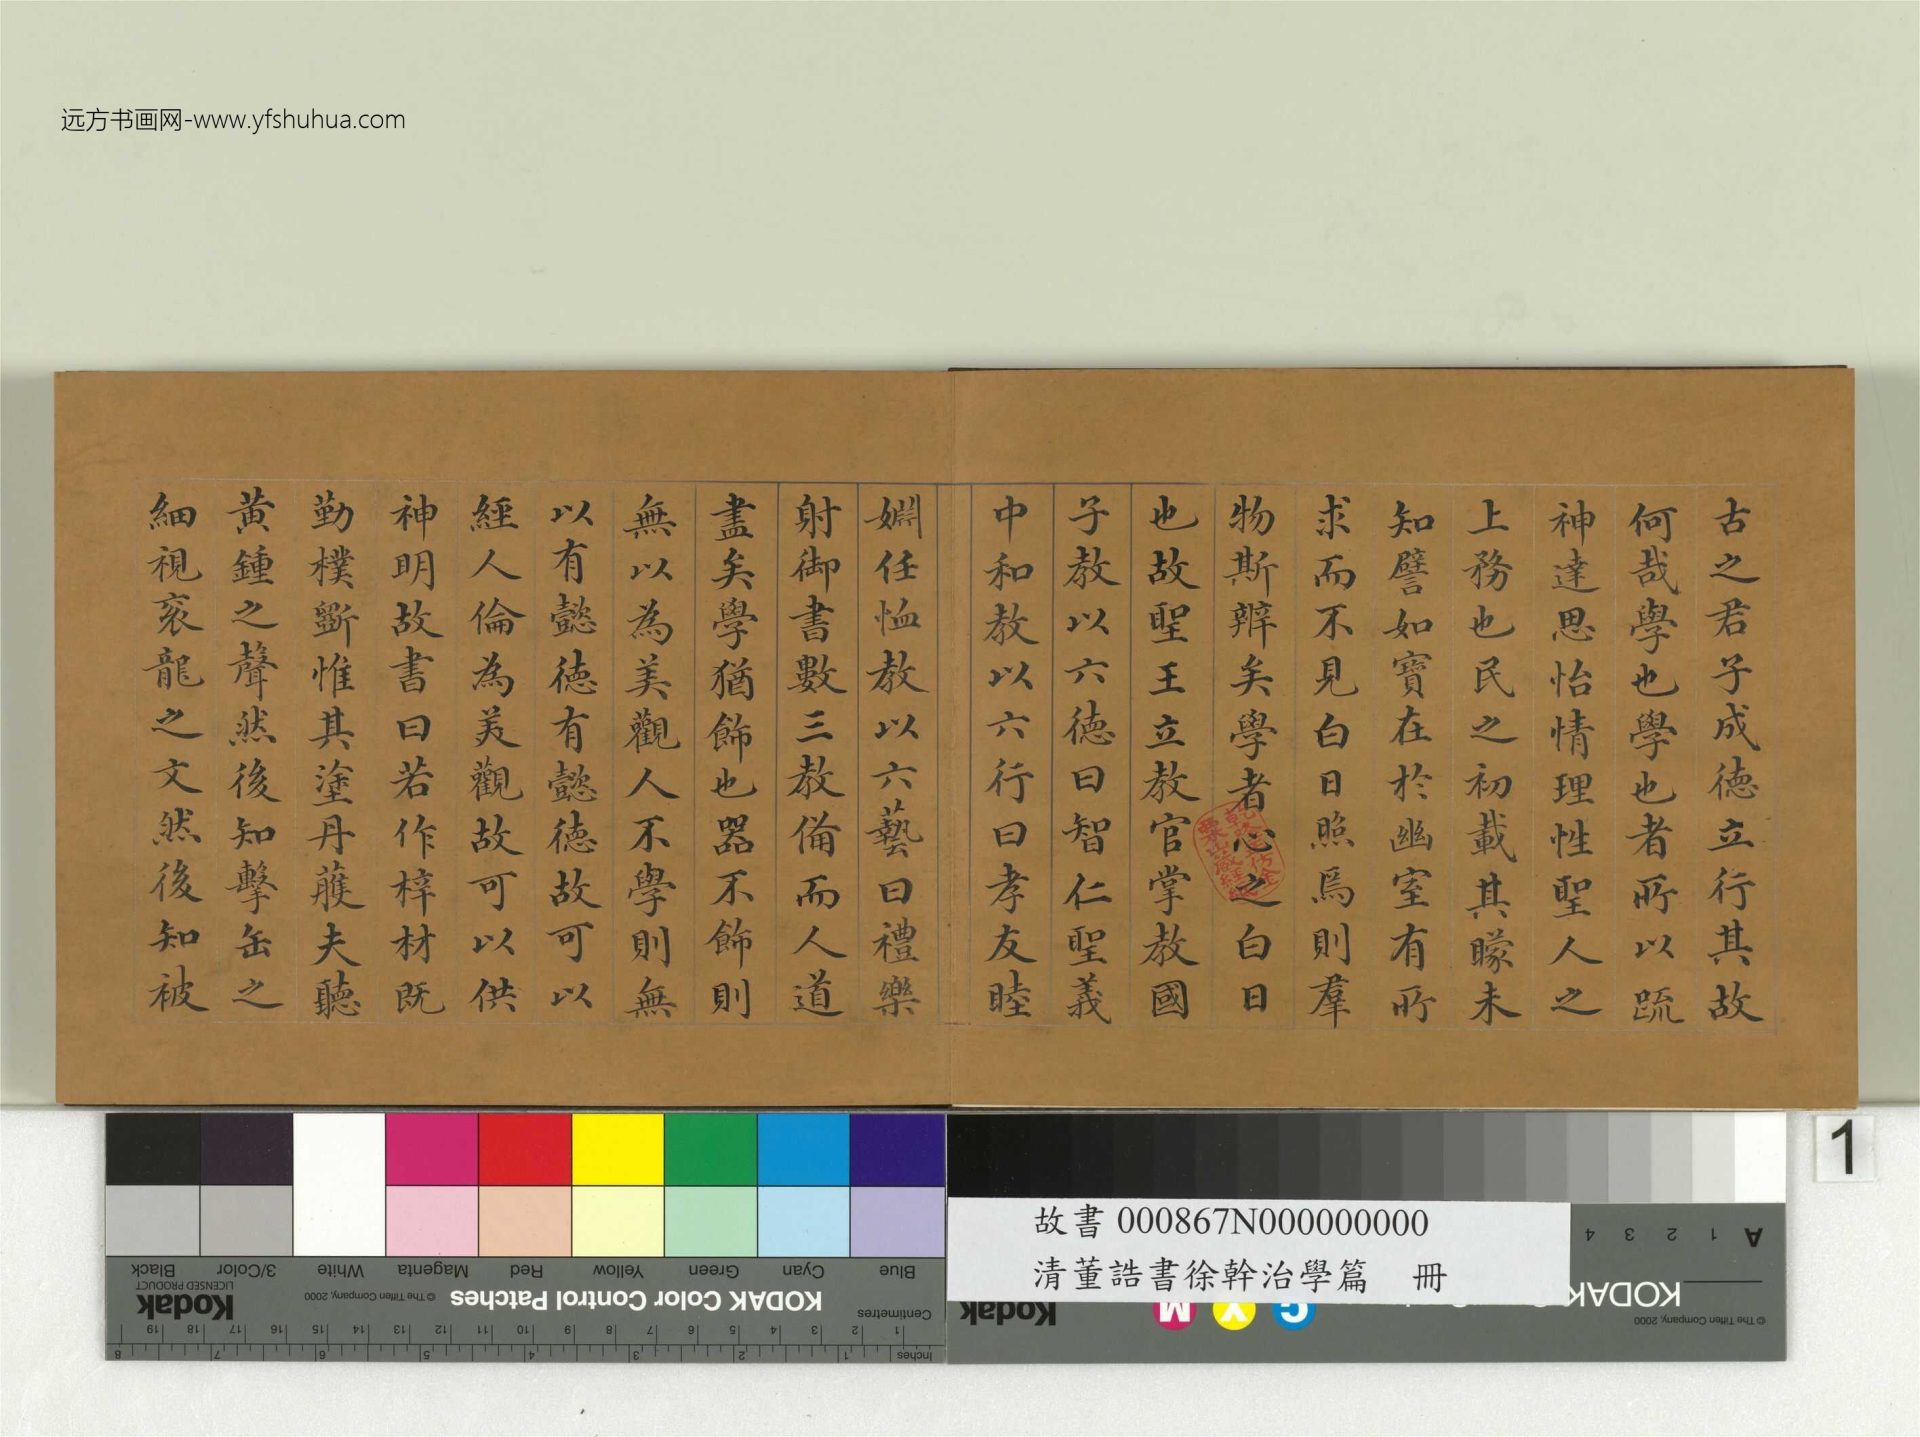 远方书画网-www.yfshuhua.com
古之君子成德立行其故
何哉學也學也者所以疏
神達思怡情理性聖人之
上務也民之初載其矇未
知譬如寶在於幽室有所
求而不見白日照焉則羣
物斯辨矣學者心之白日
也故聖王立教官掌教國
子教以六德曰智仁聖義
中和教以六行曰孝友睦
婣任恤教以六藝曰禮樂
射御書數三教備而人道
盡矣學猶飾也器不飾則
無以為美觀人不學則無
以有懿德有懿德故可以
經人倫為美觀故可以供
神明故書曰若作梓材既
勤樸斲惟其塗丹雘夫聽
黃鍾之聲然後知擊缶之
細視袞龍之文然後知被
乾隆年仿金
粟山藏經紙
1
故書 000867N000000000
清董誥書徐幹治學篇 冊
Blue Cyan Green Yellow Red Magenta White 3/Color Black
KODAK Color Control Patches
© The Tiffen Company, 2000
Kodak
LICENSED PRODUCT
Centimetres
1 2 3 4 5 6 7 8 9 10 11 12 13 14 15 16 17 18 19
Inches
1 2 3 4 5 6 7 8
A 1 2 3 4
KODAK
© The Tiffen Company, 2000
C Y M
Kodak